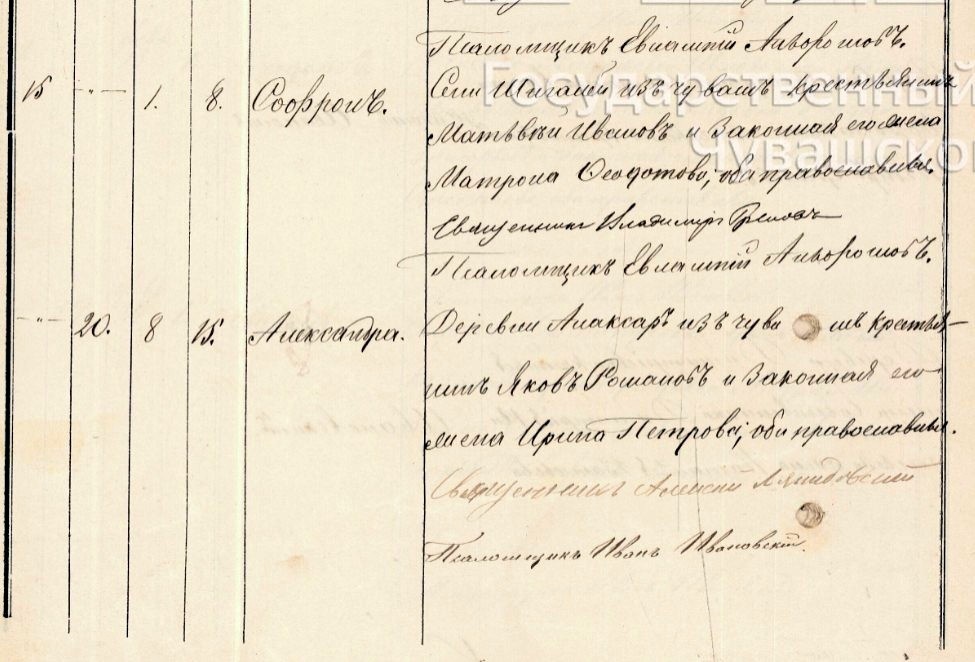 Псаломщикъ Евлампій
15 -"- 1. 8. Софронъ. Села Шигалей изъ чувашъ крестьянинъ
Матвѣй Ивановъ и законная его жена
Матрона Ѳеодотова, оба православные.
Священникъ Владимиръ
Псаломщикъ Евлампій
-"- 20. 8 15. Александра. Деревни изъ чувашъ крестья-
нинъ Яковъ Романовъ и законная его
жена Ирина Петрова, оба православные.
Священникъ Алексій
Псаломщикъ Иванъ Ивановскій.
Государственный
Чувашско